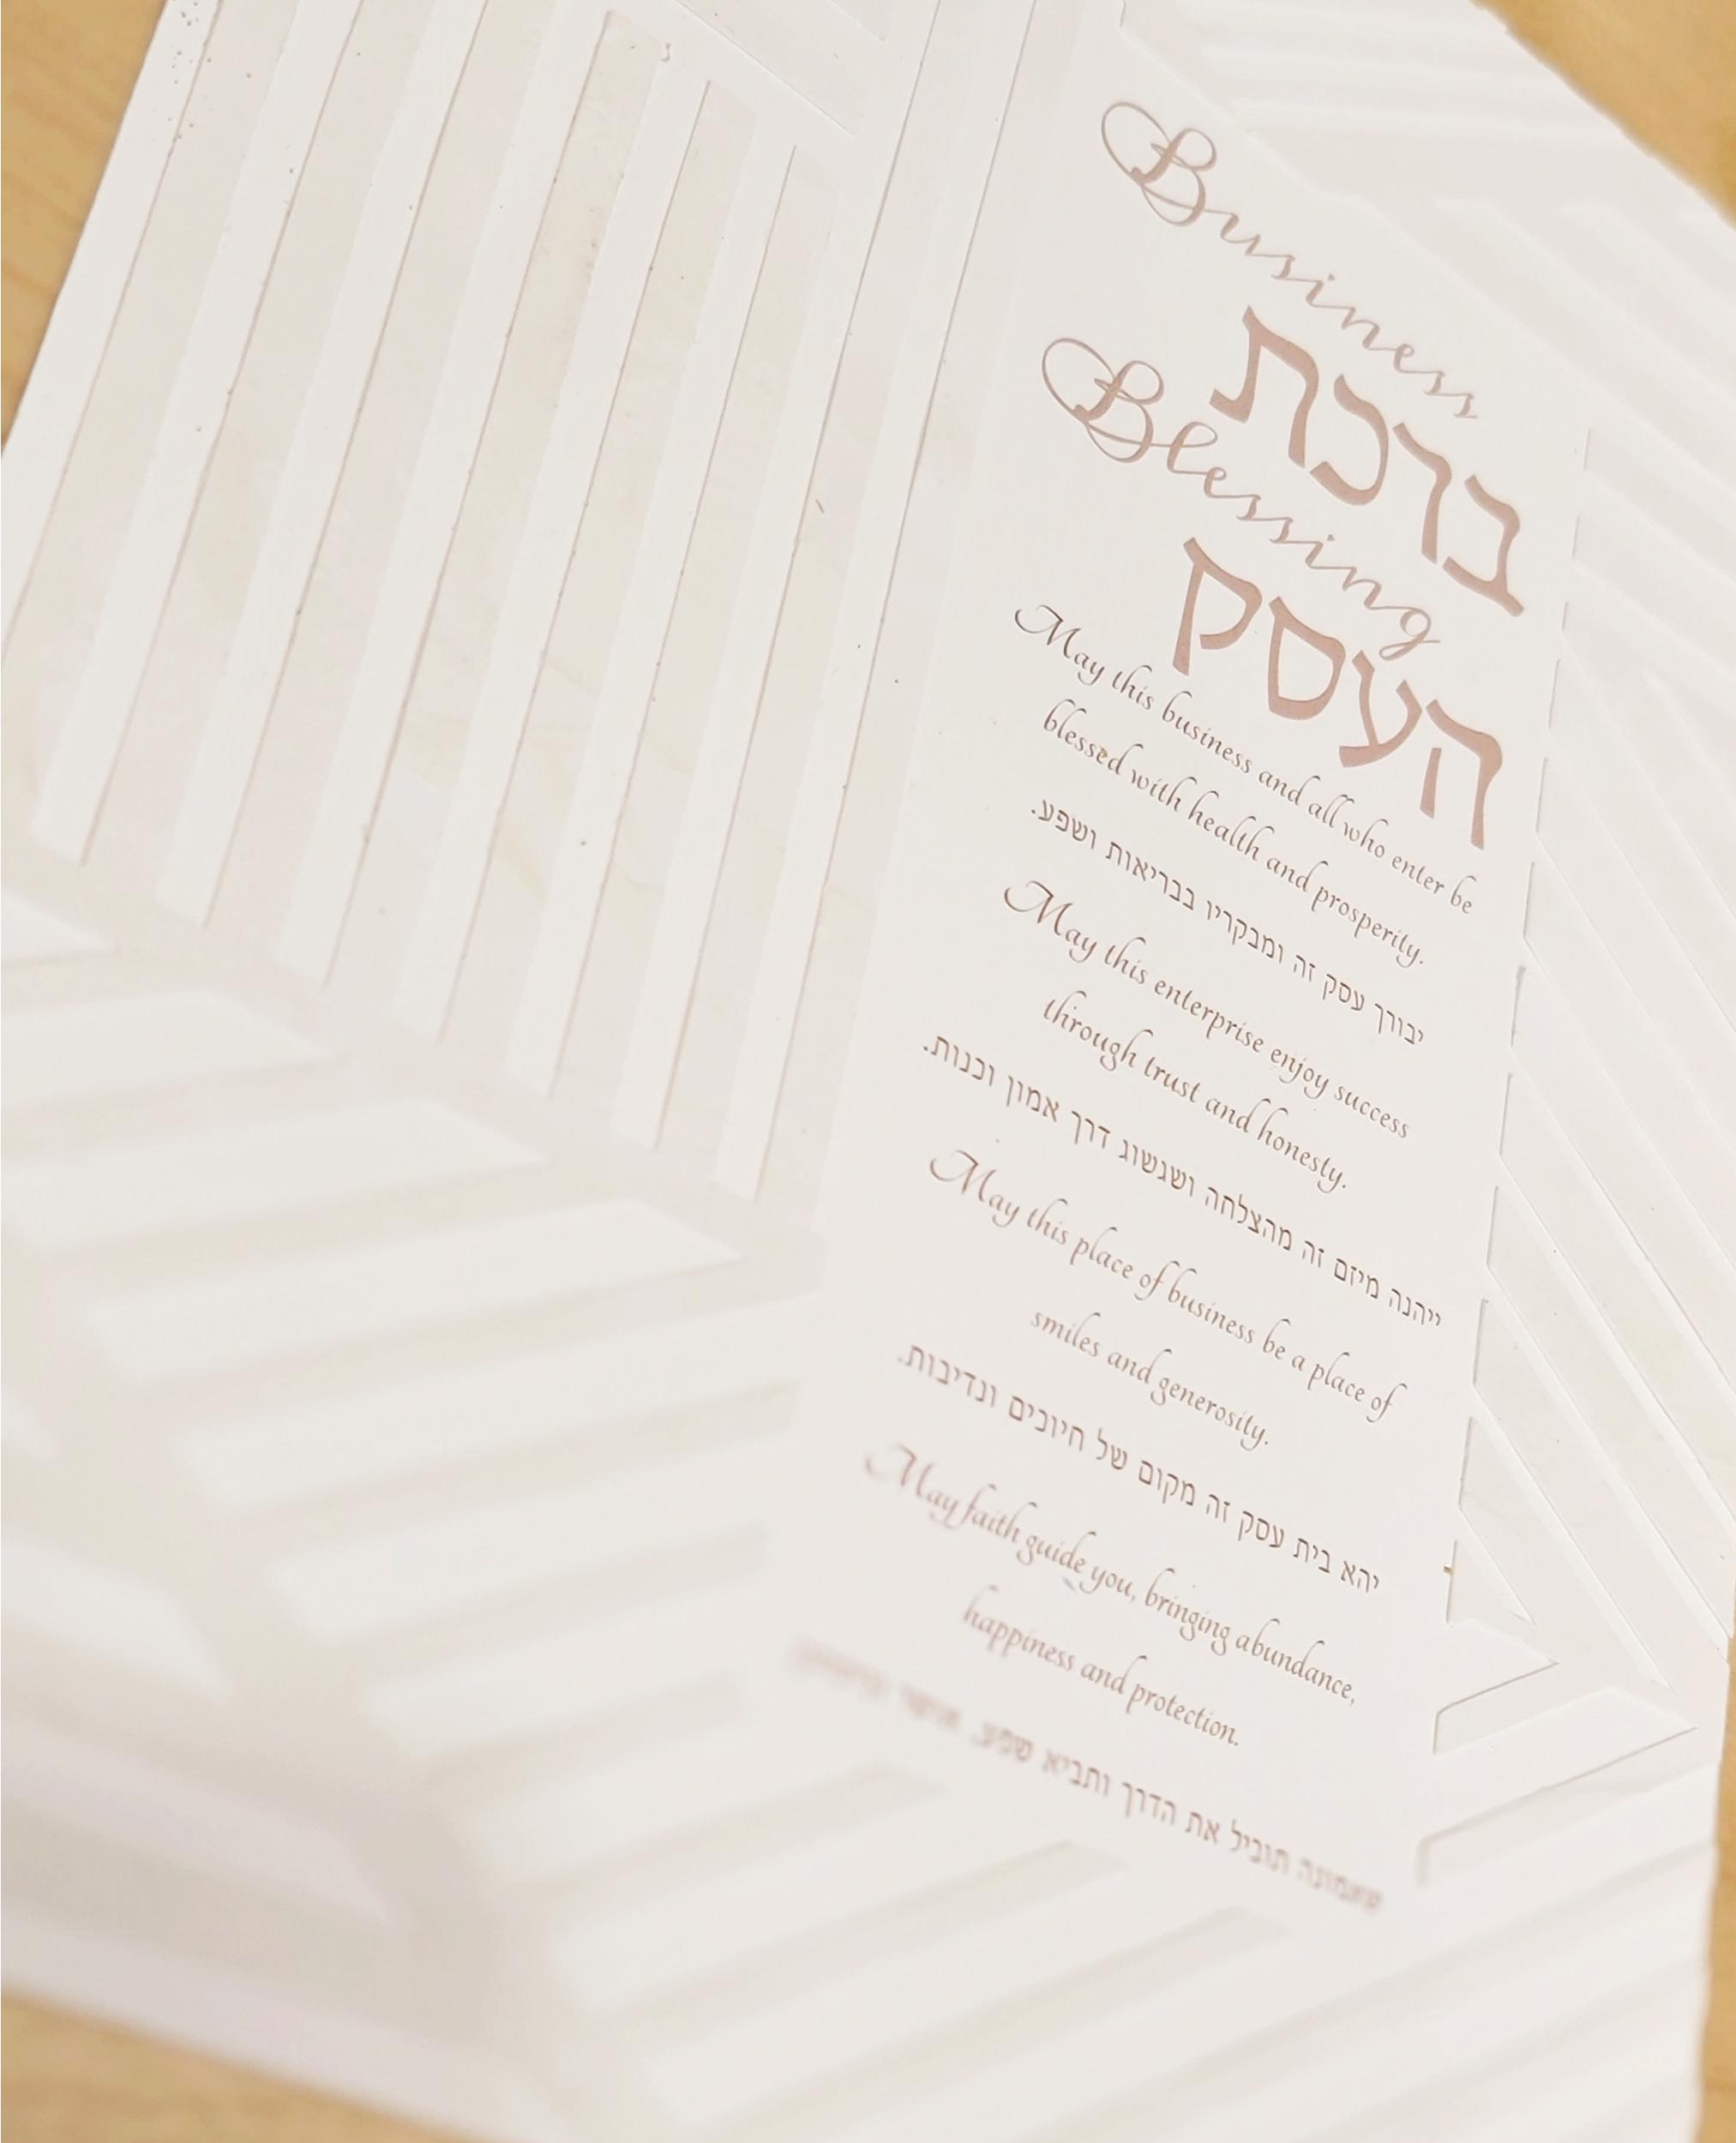 Business
ברכת
Blessing
העסק
May this business and all who enter be
blessed with health and prosperity.
יבורך עסק זה ומבקריו בבריאות ושפע.
May this enterprise enjoy success
through trust and honesty.
ייהנה מיזם זה מהצלחה ושגשוג דרך אמון וכנות.
May this place of business be a place of
smiles and generosity.
יהא בית עסק זה מקום של חיוכים ונדיבות.
May faith guide you, bringing abundance,
happiness and protection.
שאמונה תוביל את הדרך ותביא שפע, אושר